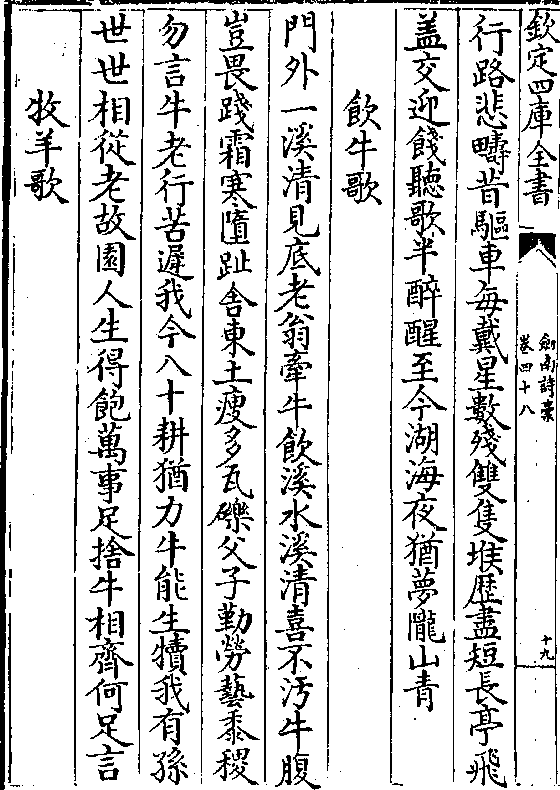 欽定四庫全書
劍南詩稾
卷四十八
十九
行路悲疇昔驅車每戴星數殘雙隻堠歴盡短長亭飛
盖交迎餞聽歌半醉醒至今湖海夜猶夢隴山青
飲牛歌
門外一溪清見底老翁牽牛飲溪水溪清喜不汚牛腹
豈畏踐霜寒墮趾舍東土瘦多瓦礫父子勤勞藝黍稷
勿言牛老行苦遲我今八十耕猶力牛能生犢我有孫
世世相從老故園人生得飽萬事足捨牛相齊何足言
牧羊歌